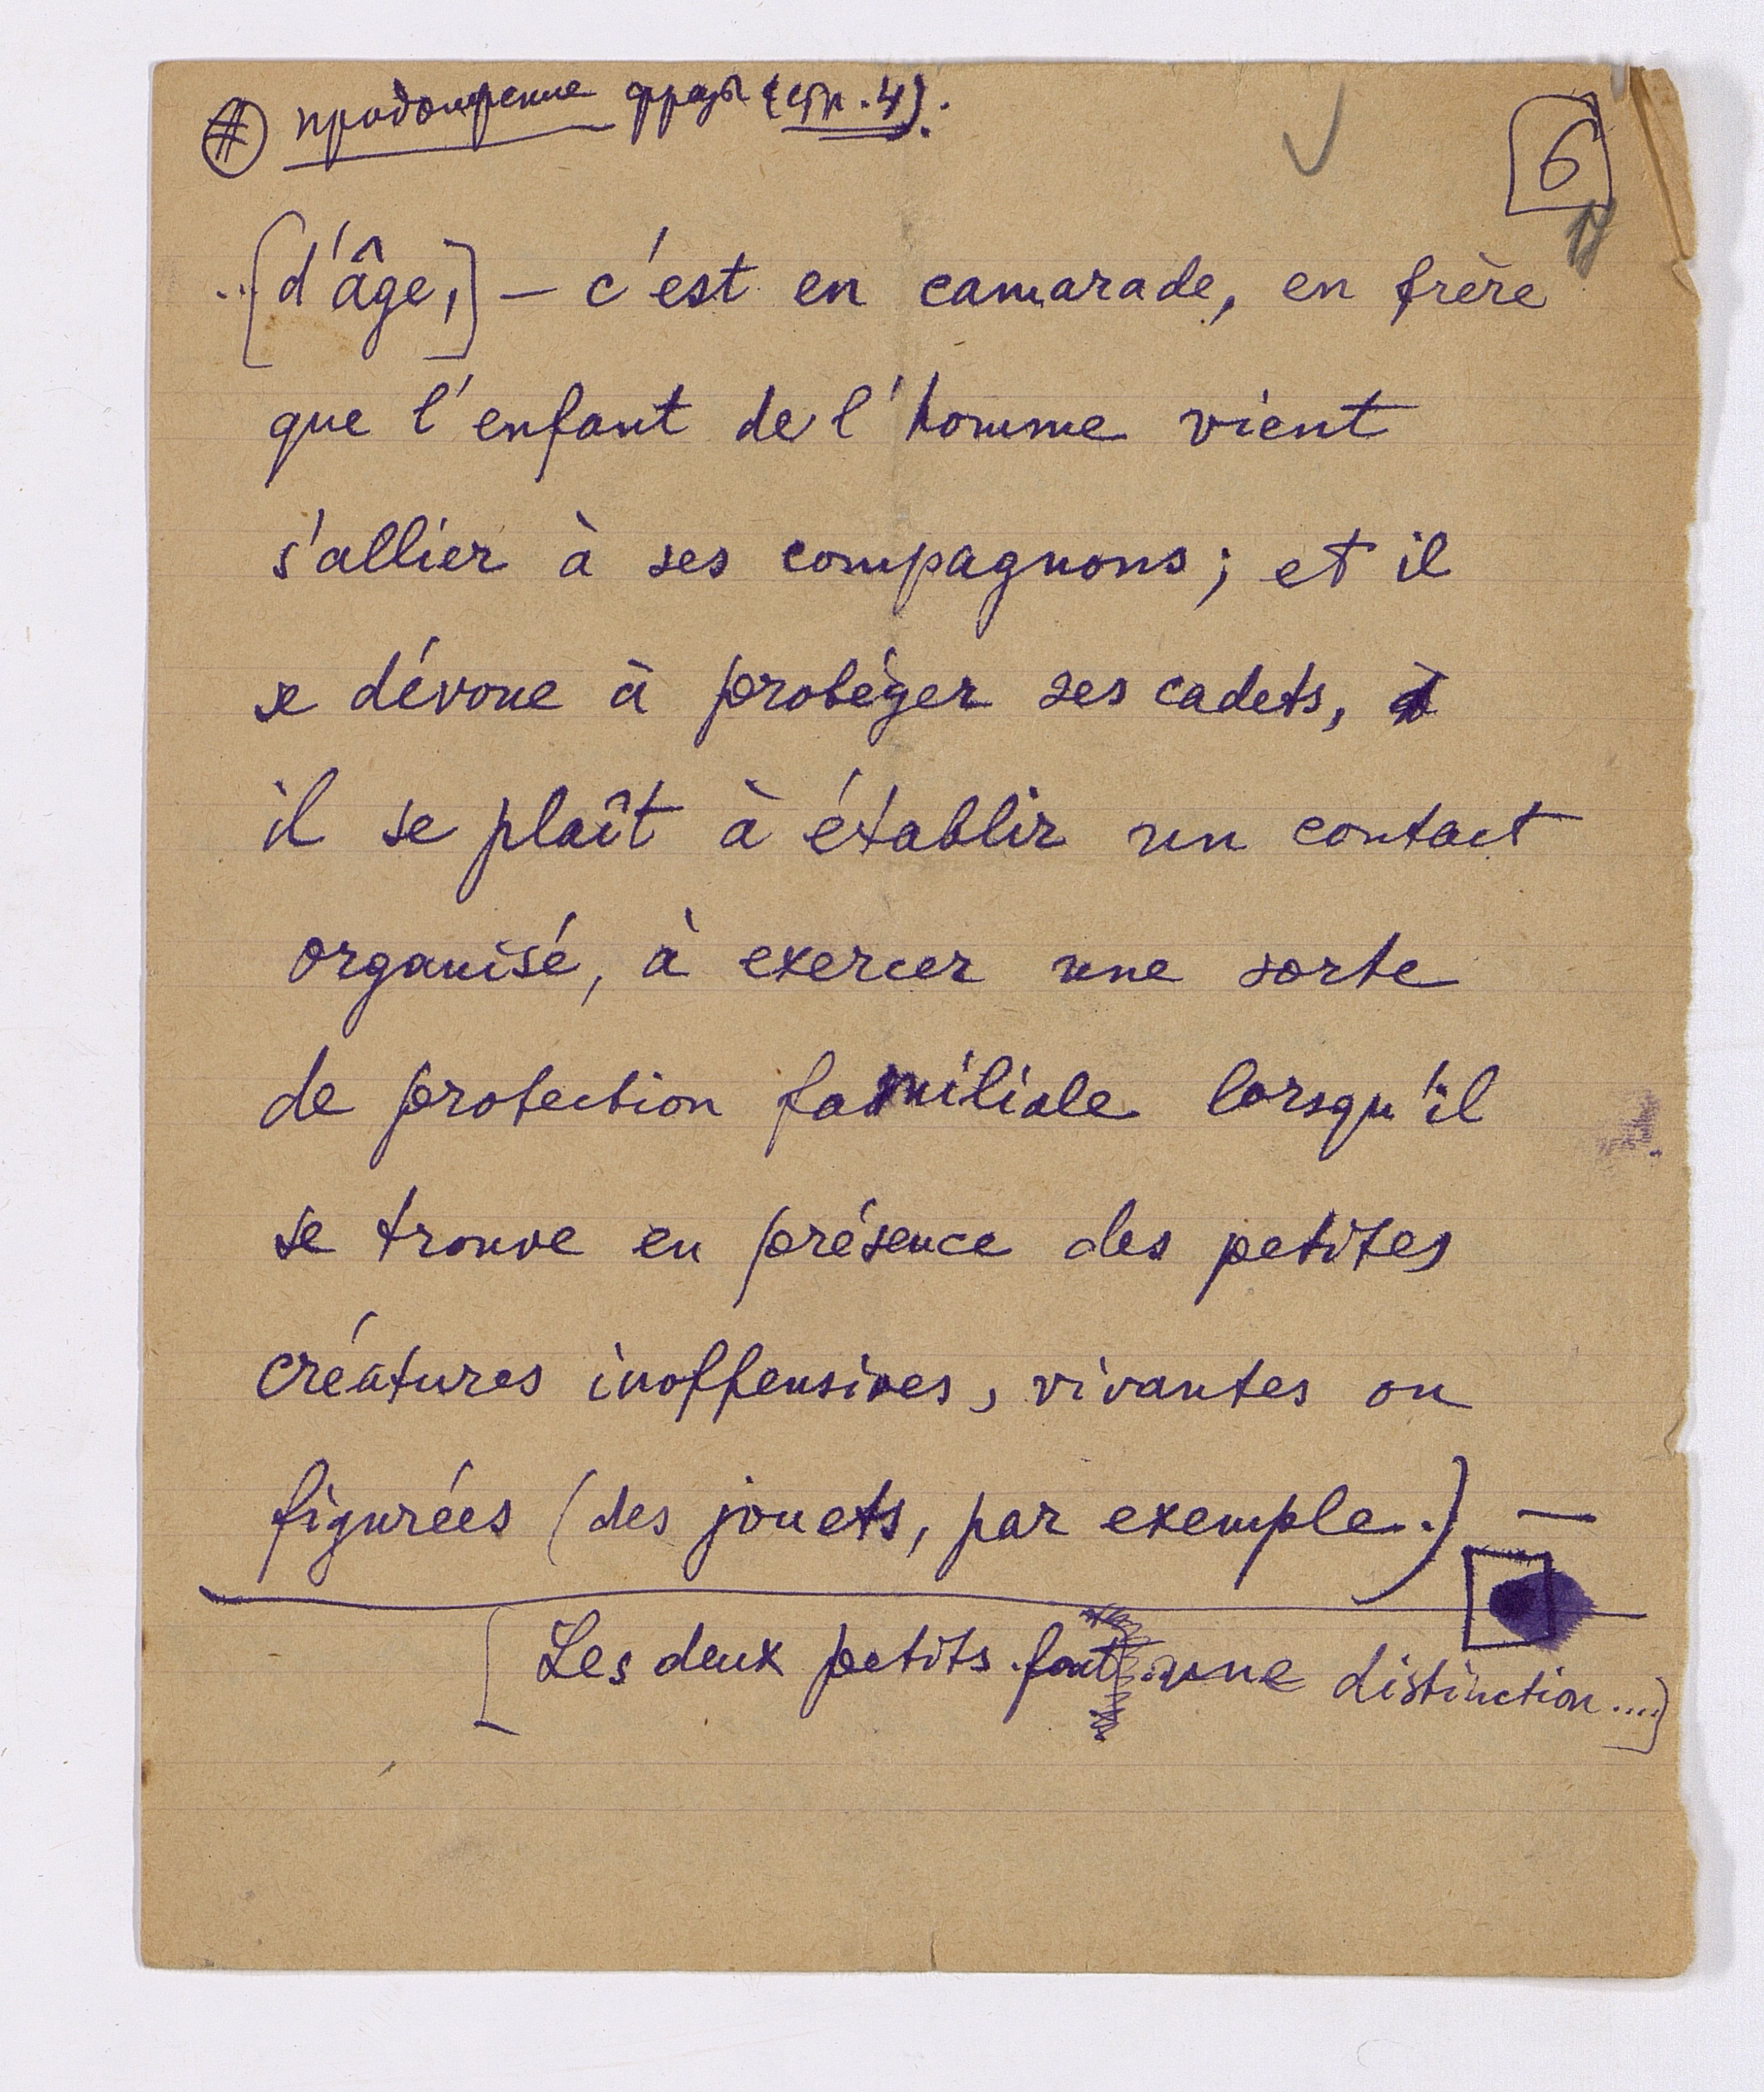 # продолжение фразы (стр. 4).
6
..[d'âge,] — c'est en camarade, en frère
que l'enfant de l'homme vient
s'allier à ses compagnons; et il
se dévoue à protéger ses cadets,
il se plaît à établir un contact
organisé, à exercer une sorte
de protection familiale lorsqu'il
se trouve en présence des petites
créatures inoffensives, vivantes ou
figurées (des jouets, par exemple.) —
[Les deux petits font une distinction....]